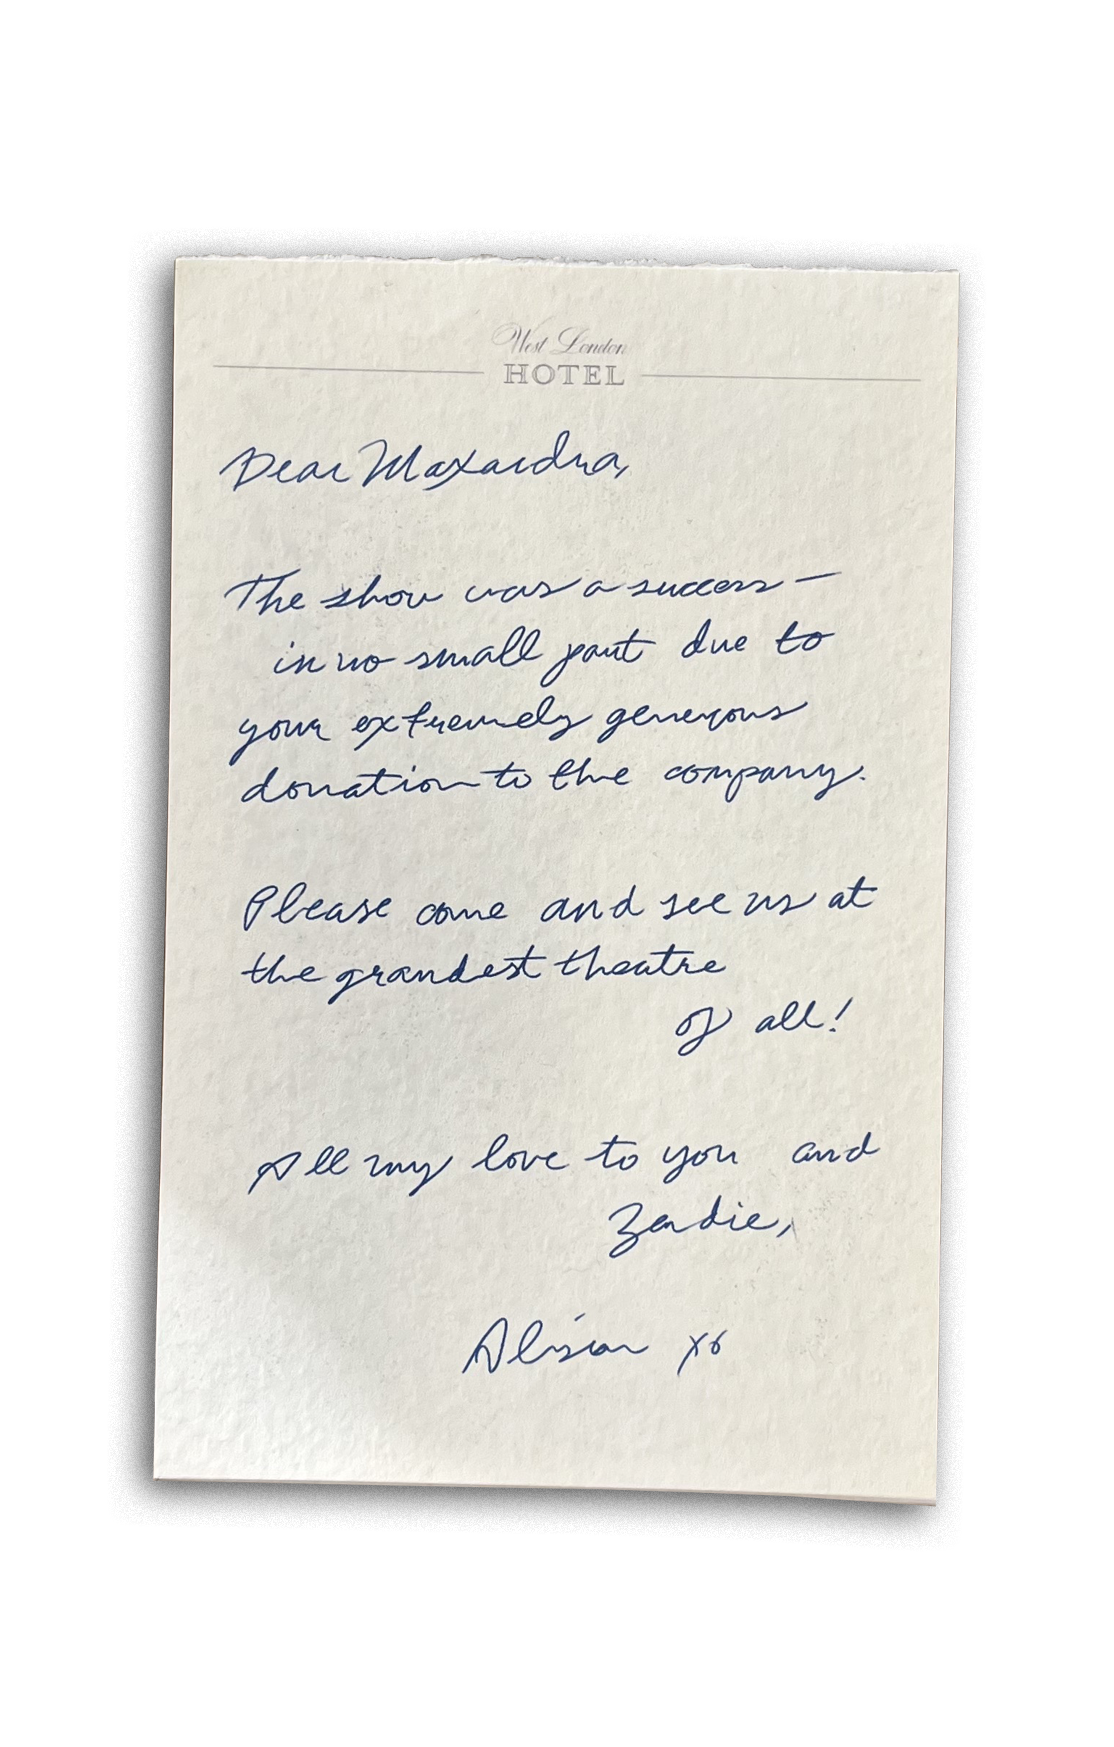 West London
HOTEL
Dear Maxandra,
The show was a success —
in no small part due to
your extremely generous
donation to the company.
Please come and see us at
the grandest theatre
of all!
All my love to you and
Zendie,
Alison xo